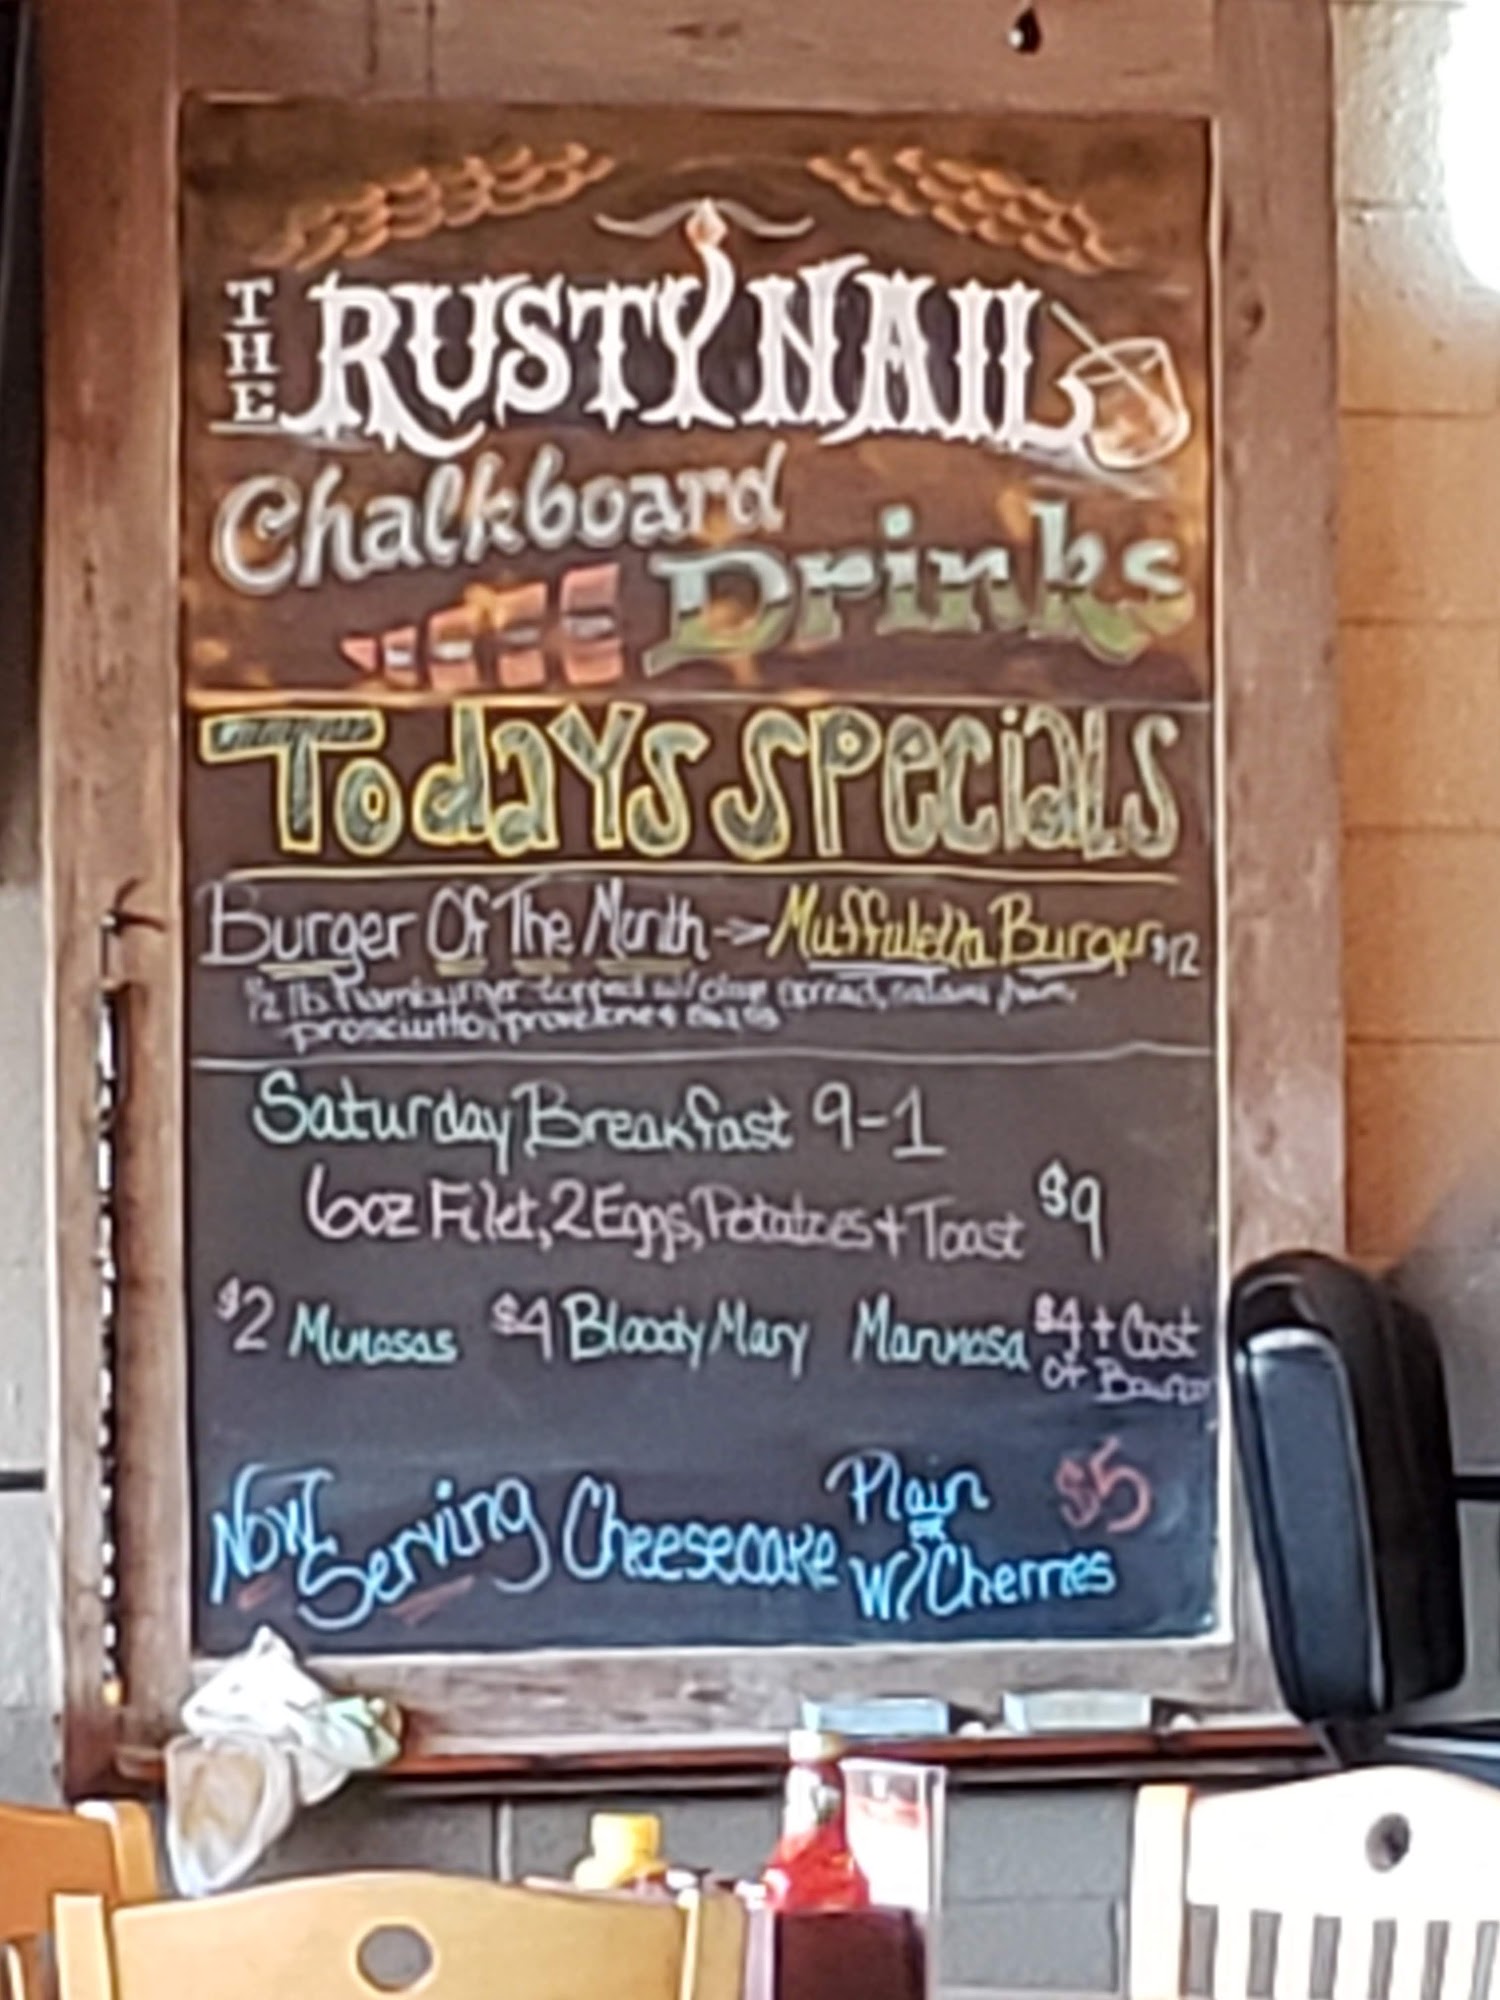 THE RUSTY NAIL
Chalkboard
Drinks
Todays Specials
Burger Of The Month -> Muffuletta Burger $12
1/2 lb Hamburger topped w/ olive spread, salami, ham,
prosciutto, provolone +
Saturday Breakfast 9-1
6oz Filet, 2 Eggs, Potatoes + Toast $9
$2 Mimosas $4 Bloody Mary Manmosa $4 + Cost
of
Now Serving Cheesecake Plain or W/Cherries $5